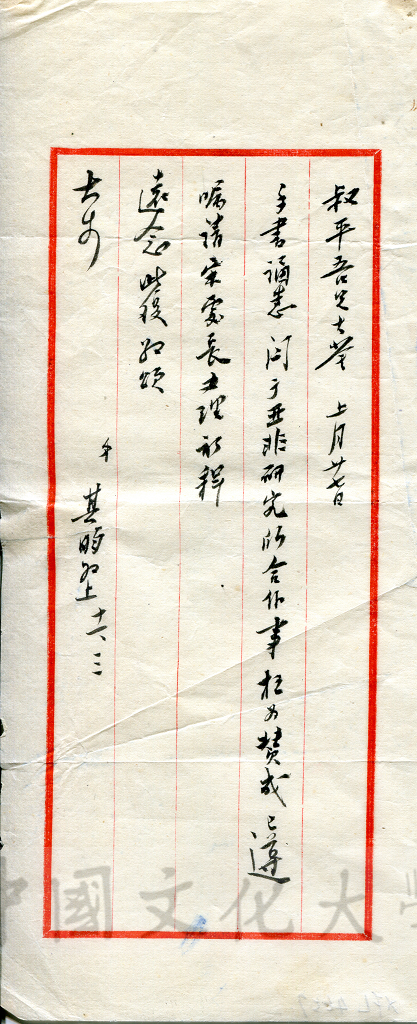 叔平吾兄大鉴 上月廿七日
手書誦悉 関于亚非研究所合作事極為贊成 已遵
嘱請宋處長办理祈釋
遠念 此複敬頌
大安
弟 其昀敬上 十六、三
中國文化大學